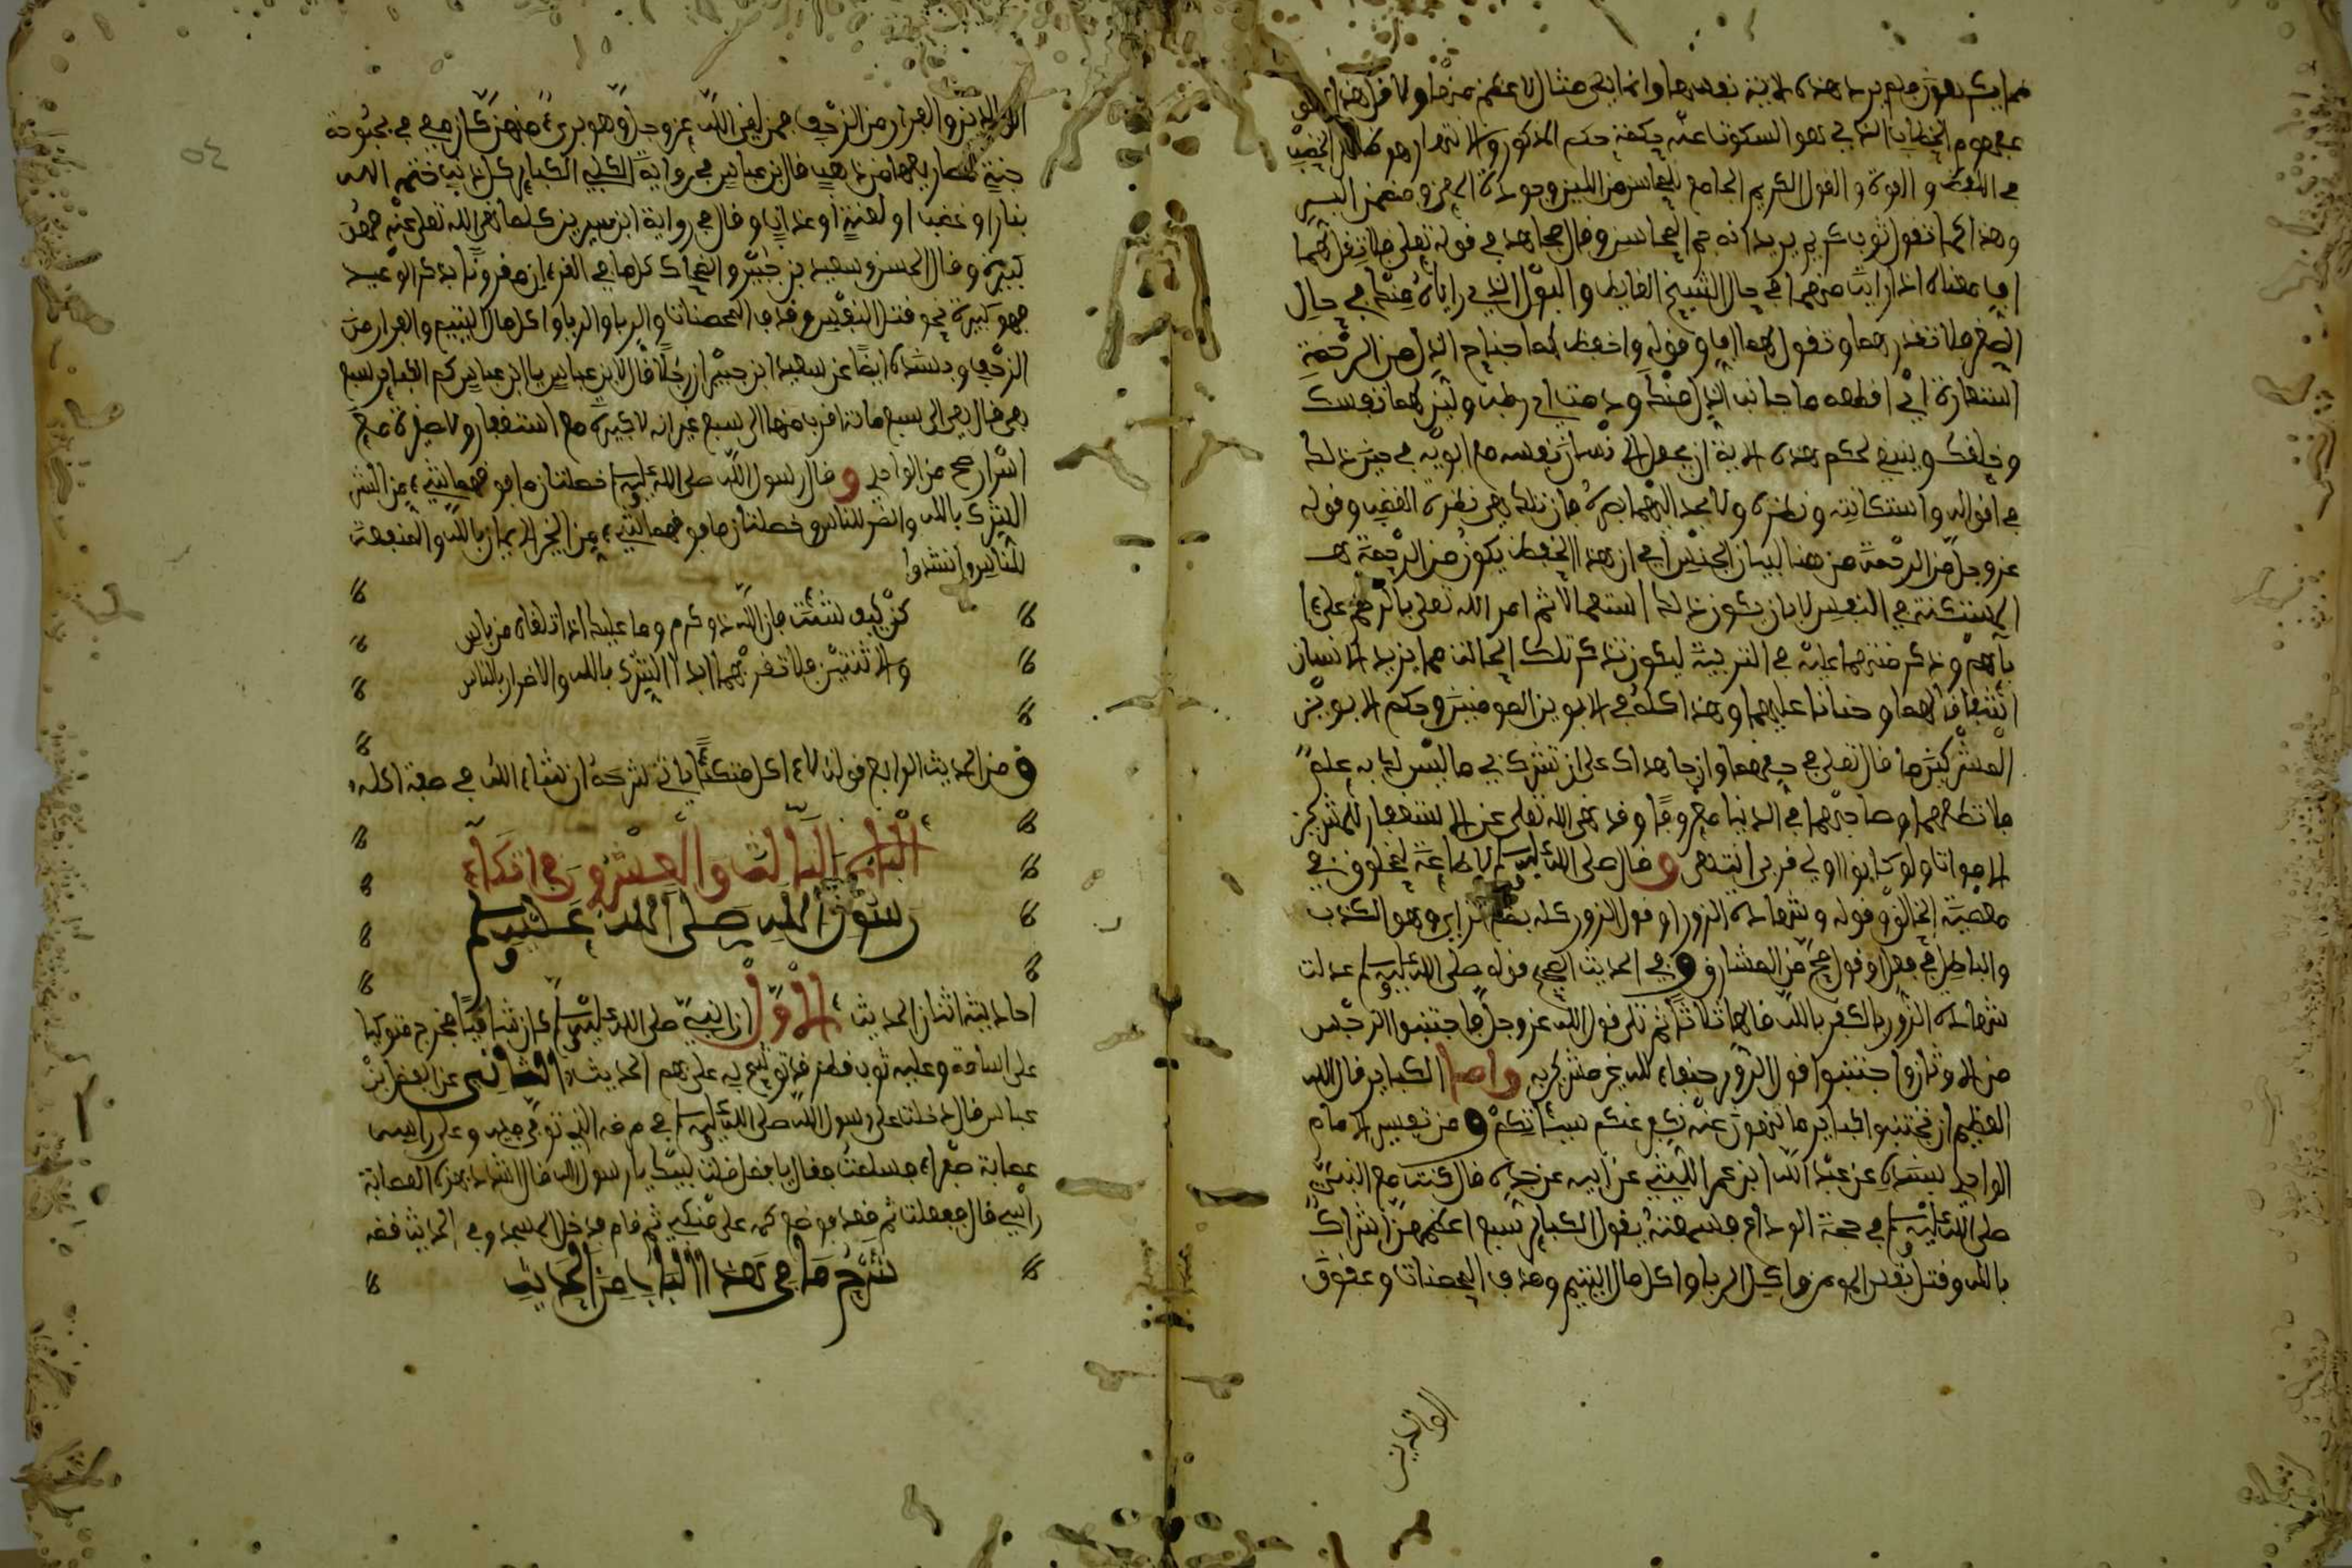 بمفهوم الخطاب الذي هو المسكوت عنه حكمه حكم المذكور
في اللفظ والقوة والقول الكريم الجامع للمحاسن من اللين وجودة المعنى وتضمن البر
وهذا كما تقول ثوب كريم يريد انه جم المحاسن وقال مجاهد في قوله تعلى فلا تقل لهما
اف معناه اذا رايت منهما في حال الشيخ الغايط والبول الذي راياه منك في حال
الصغر فلا تقذرهما وتقول لهما اف وقوله واخفض لهما جناح الذل من الرحمة
استعارة اي اقطعهما جانب الذل منك ودمث لهما نفسك
وخلقك وينبغي بحكم هذه الاية ان يجعل الانسان نفسه مع ابويه في حيز ذلة
في اقواله واستكانته ونظره ولا يحد اليهما بصره فان تلك هي نظرة الغضب وقوله
عز وجل من الرحمة من هنا لبيان الجنس اي ان هذا الخفض يكون من الرحمة
المستكنة في النفس لا بان يكون ذلك استعمالا ثم امر الله تعلى بالترحم على
بايهم وذكر منتهما عليه في التربية ليكون تذكر تلك الحالة مما يزيد الانسان
اشفاقا لهما وحنانا عليهما وهذا كله في الابوين المومنين وحكم الابوين
المشركين ما قال تعلى في حقهما وان جاهداك على ان تشرك بي ما ليس لك به علم
فلا تطعهما وصاحبهما في الدنيا معروفا وقد نهى الله تعلى عن الاستغفار للمشركين
الاموات ولو كانوا اولي قربى انتهى وقال صلى الله عليه وسلم لا طاعة لمخلوق في
معصية الخالق وقوله وشهادة الزور او قول الزور كله بضم الزاي وهو الكذب
والباطل في فعل او قول صح من المشارق وفي الحديث الصحيح قوله صلى الله عليه وسلم عدلت
شهادة الزور بالكفر بالله قالها ثلاثا ثم تلى قول الله عز وجل فاجتنبوا الرجس
من الاوثان واجتنبوا قول الزور حنفاء لله غير مشركين به واما الكباير قال الله
العظيم ان تجتنبوا كباير ما تنهون عنه نكفر عنكم سيئاتكم ومن تفسير الامام
الواحدي بسنده عن عبد الله ابن عمر الليثي عن ابيه عن جده قال كنت مع النبي
صلى الله عليه وسلم في حجة الوداع فسمعته يقول الكباير تسع اعظمهن اشراك
بالله وقتل نفس المومن واكل الربا واكل مال اليتيم وقذف المحصنات وعقوق
الوالدين
الوالدين والفرار من الزحف فمن لقي الله عز وجل وهو بريء منهن كان معي في بحبوحة
جنة مصاريعها من ذهب قال ابن عباس في رواية الكلبي الكباير كل ذنب ختمه الله
بنار او غضب او لعنة او عذاب وقال في رواية ابن سيرين كلما نهى الله تعلى عنه فهو
كبيرة وقال الحسن وسعيد بن جبير والضحاك كلما في القرءان مقرونا بذكر الوعيد
فهو كبيرة نحو قتل النفس وقذف المحصنات والربا واكل مال اليتيم والفرار من
الزحف وبسنده ايضا عن سعيد ابن جبير ان رجلا قال لابن عباس يا ابن عباس كم الكباير سبع
هي قال هي الى سبع مائة اقرب منها الى سبع غير انه لا كبيرة مع استغفار ولا صغيرة مع
اصرار صح من الواحدي وقال رسول الله صلى الله عليه وسلم خصلتان ما فوقهما شيء من الشر
الشرك بالله والضر للناس وخصلتان ما فوقهما شيء من الخير الايمان بالله والمنفعة
للناس وانشدوا
كن كيف شئت فان الله ذو كرم وما عليك اذا تلقاه من باس
والا ثنتين فلا تقربهما ابدا الشرك بالله والاضرار بالناس
ومن الحديث الرابع قوله لا ءاكل متكئا ياتي شرحه ان شاء الله في صفة اكله
الباب الثالث والعشرون في اتكاء
رسول الله صلى الله عليه وسلم
احاديثه اثنان الحديث الاول ان النبي صلى الله عليه وسلم كان شاكيا فخرج متوكيا
على اسامة وعليه ثوب قطري قد توشح به صلى بهم الحديث الثاني عن الفضل ابن
عباس قال دخلت على رسول الله صلى الله عليه وسلم في مرضه الذي توفي فيه وعلى راسه
عصابة صفراء فسلمت فقال يا فضل قلت لبيك يا رسول الله قال اشدد بهذه العصابة
راسي قال ففعلت ثم قعد فوضع كفه على منكبي ثم قام فدخل المسجد وفي الحديث قصة
شرح ما في هذا الباب من الحديث